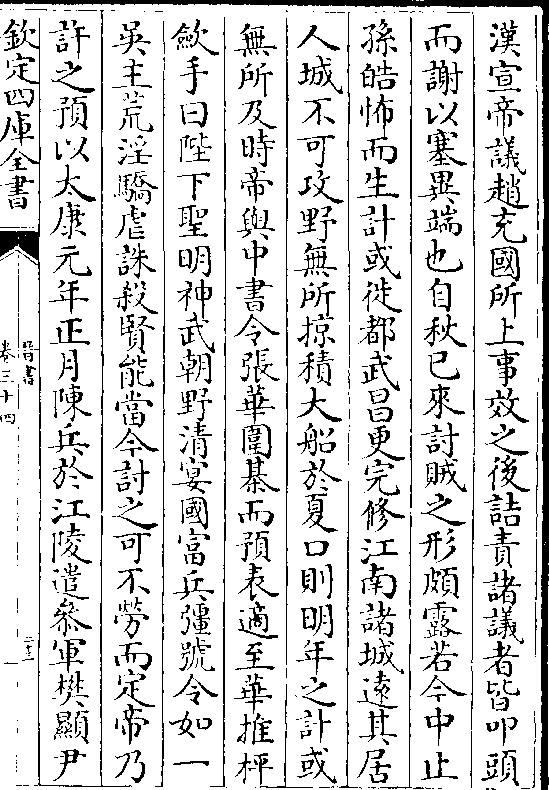 漢宣帝議趙充國所上事效之後詰責諸議者皆叩頭
而謝以塞異端也自秋已來討賊之形頗露若今中止
孫皓怖而生計或徙都武昌更完修江南諸城遠其居
人城不可攻野無所掠積大船於夏口則明年之計或
無所及時帝與中書令張華圍棊而預表適至華推枰
斂手曰陛下聖明神武朝野清宴國富兵彊號令如一
吳主荒淫驕虐誅殺賢能當今討之可不勞而定帝乃
許之預以太康元年正月陳兵於江陵遣叅軍樊顯尹
欽定四庫全書
晉書
卷三十四